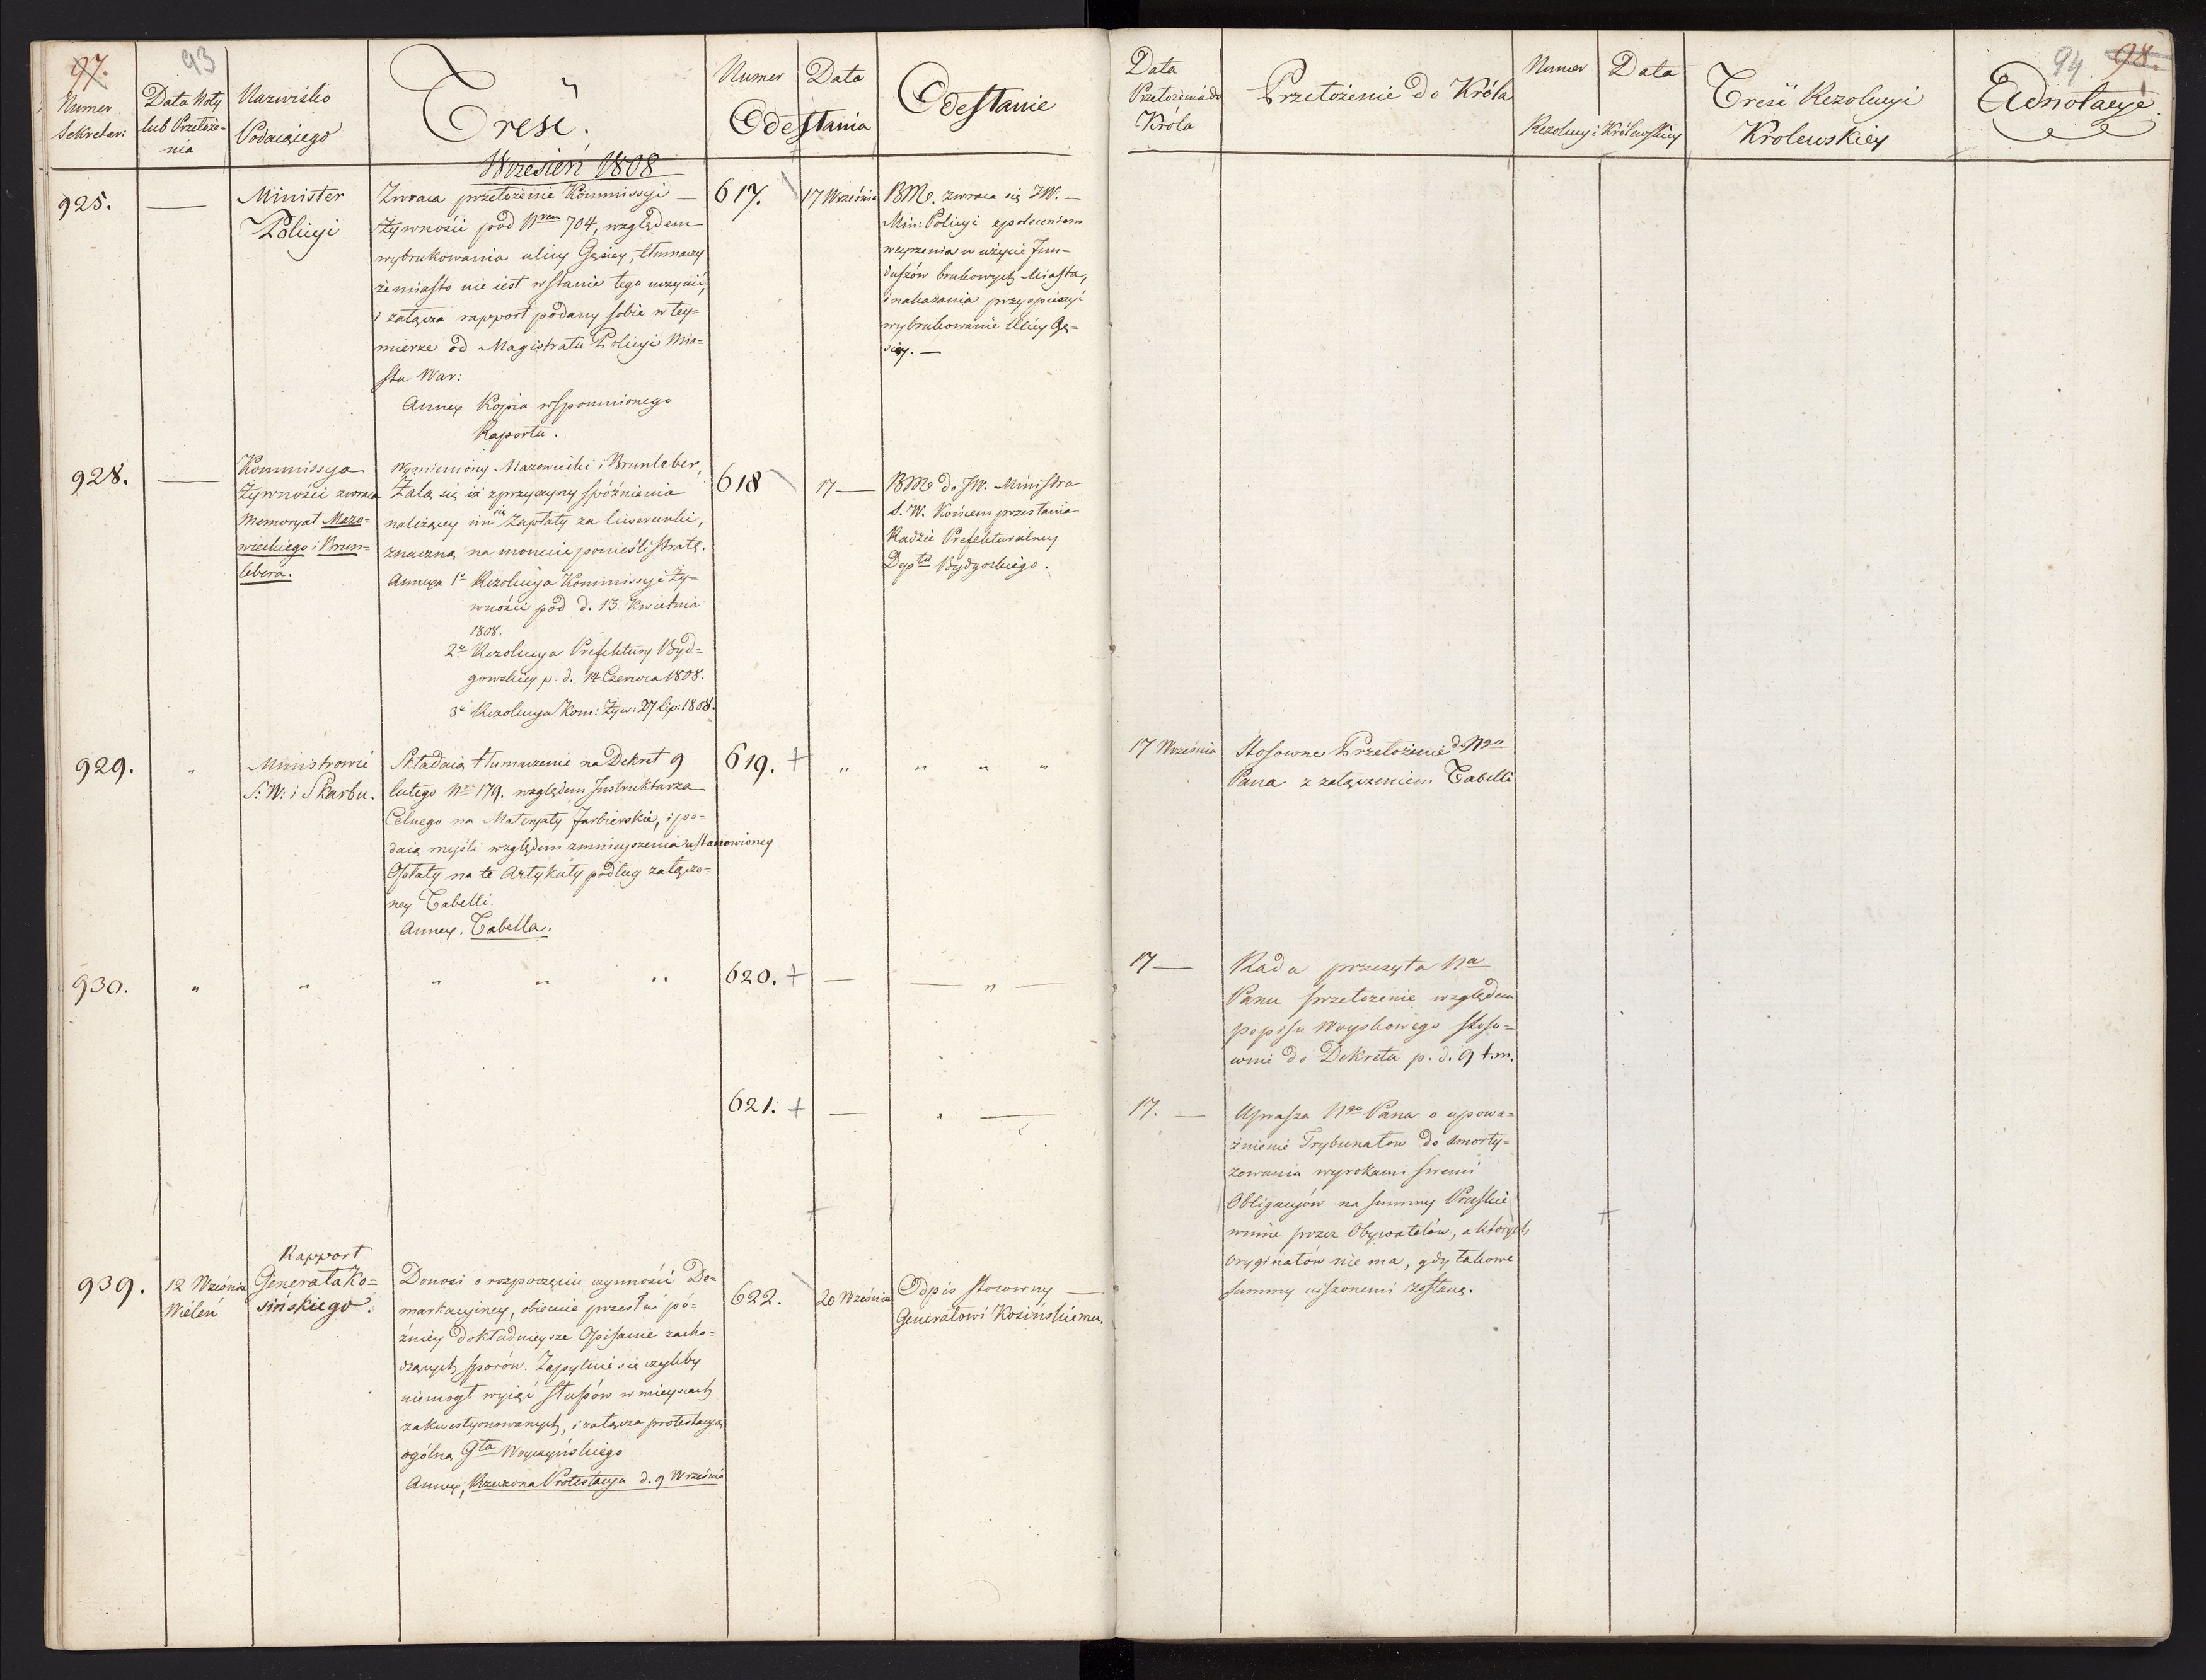 97.
93
Numer
Sekretar:
Data Noty
lub Przełoże=
nia
Nazwisko
Podaiącego
Treść.
Numer
Data
Odesłania
Odesłanie
Wrzesień 1808
925.
Minister
Policyi
Zwraca przełożenie Kommissyi
Żywności pod Nrem 704, względem
wybrukowania ulicy Gęsiey, tłumaczy
że miasto nie iest w stanie tego uczynić,
i załącza rapport podany sobie w tey=
mierze od Magistratu Policyi Mia=
sta War:
Annex Kopia wspomnionego
Raportu.
617.
17 Września
BM. zwraca się JW. —
Min: Policyi z poleceniem
weyrzenia w użycie fun=
duszów brukowych Miasta,
i nakazania przyspieszyć
wybrukowanie Ulicy Gę=
siey. —
928.
Kommissya
Żywności zwraca
Memoryał Mazo=
wieckiego i Brun=
lebera.
Wymieniony Mazowiecki i Brunleber,
Żalą się iż z przyczyny spóźnienia
należącey im się Zapłaty za liwerunki,
znaczną na monecie ponieśli stratę.
Annexa 1o Rezolucya Kommissyi Ży=
wności pod d. 13. Kwietnia
1808.
2o Rezolucya Prefektury Byd=
gowskiey p. d. 14 Czerwca 1808.
3o Rezolucya Kom: Żyw: 27 lip: 1808.
618
17 —
BM do JW. Ministra
S. W. Końcem przesłania
Radzie Prefekturalney
Dep tu Bydgoskiego.
929.
"
Ministrowie
S: W: i Skarbu.
Składaią tłumaczenie na Dekret 9
lutego Nr 179. względem Instruktarza
Celnego na Materyały farbierskie, i po=
daią myśli względem zmnieyszenia ustanowioney
Opłaty na te Artykuły podług załączo=
ney Tabelli.
Annex. Tabella.
619. +
" " " "
930.
" " " " "
620. +
— — " —
621. +
— " —
939.
12 Wześnia
Wieleń
Rapport
Generała Ko=
sińskiego.
Donosi o rozpoczęciu czynności De=
markacyiney, obiecuie przesłać pó=
źniey dokładnieysze Opisanie zacho=
dzących sporów. Zapytuie się czyliby
niemogł wyiąć słupów w mieyscach
zakwestyonowanych, i załącza protestacyą
ogólną Gła Woyczyńskiego
Annex, Rzeczona Protestacya d. 9 Wrześnie
622.
20 Wześnia
Odpis stosowny —
Generałowi Kosińskiemu.
94 98.
Data
Przełożenia do
Króla
Przełożenie do Króla
Numer
Data
Rezolucyi Królewskiey
Treść Rezolucyi
Krolewskiey
Adnotacye.
17 Września
Stosowne Przełożenie do Ngo
Pana z załączeniem Tabelli
17 —
Rada przesyła Na
Panu przełożenie względem
popisu Woyskowego stoso=
wnie do Dekretu p. d. 9 t.m.
17. —
Uprasza Ngo Pana o upowa=
żnienie Trybunałow do Amorty=
zowania wyrokami swemi
Obligacyów na summy Pruskie
winne przez Obywatelów, a których
Oryginałów nie ma, gdy takowe
summy uiszonemi zostaną.